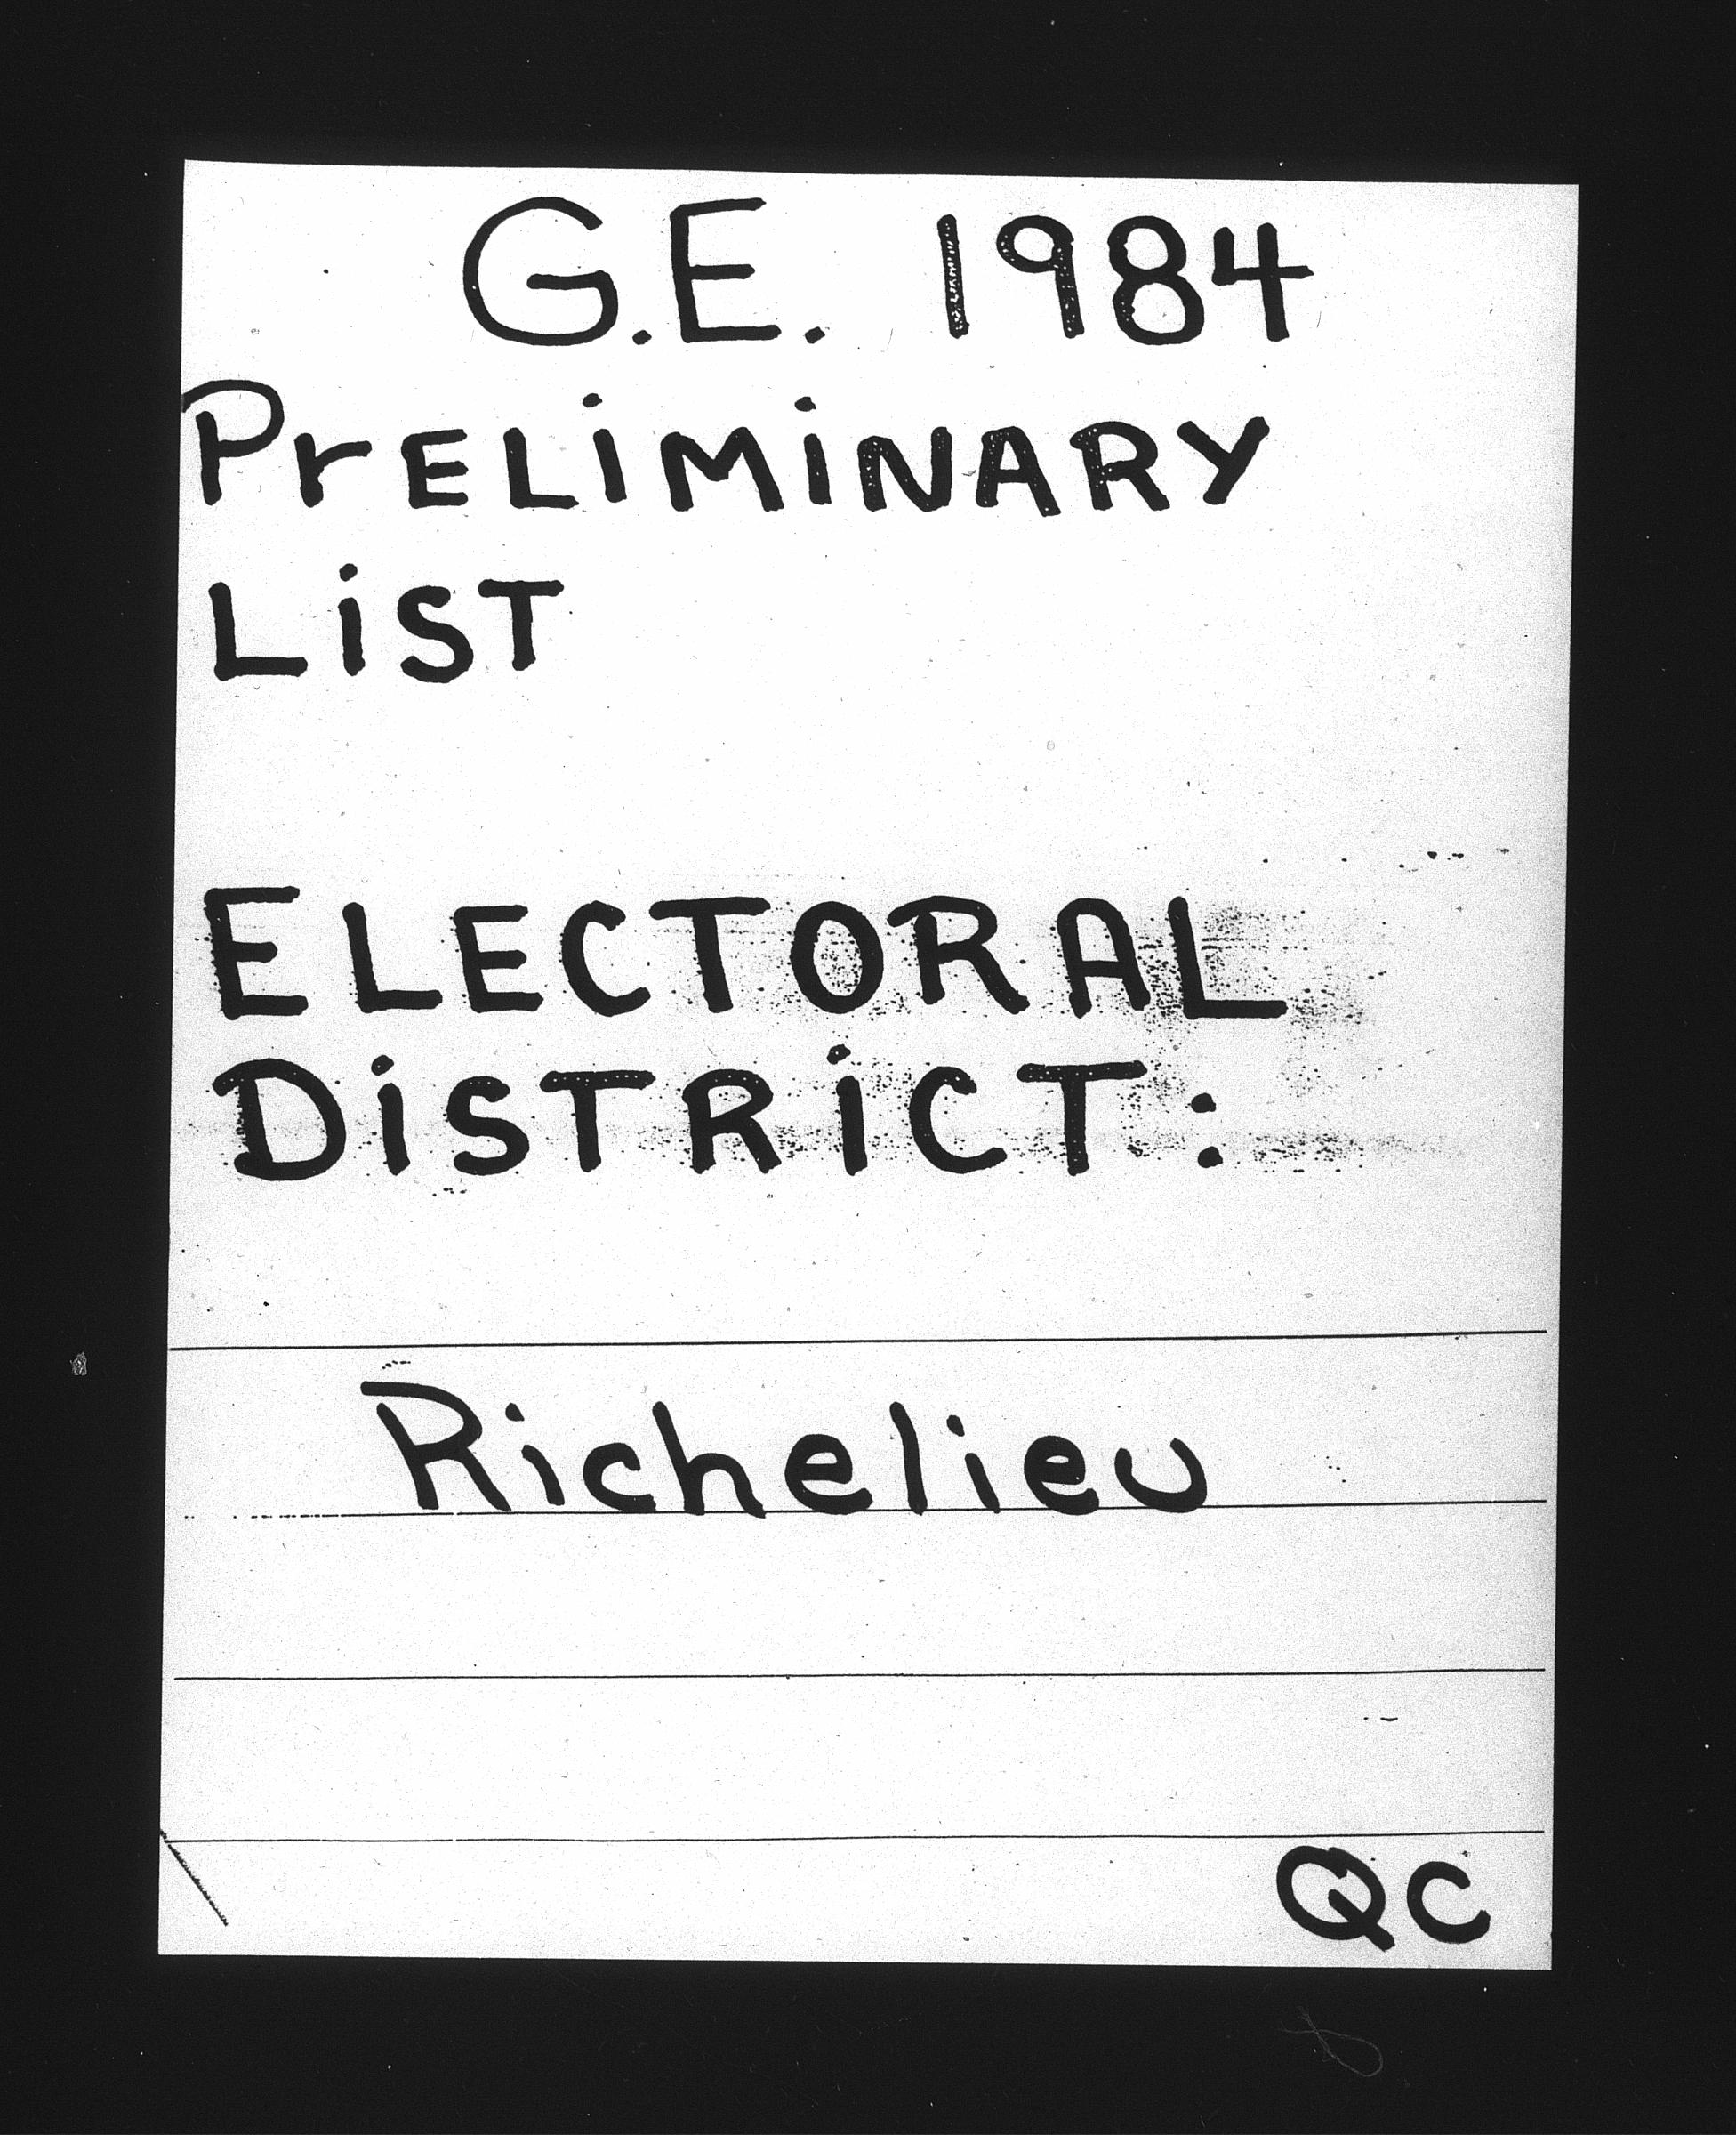 G.E. 1984
PrELiMiNARY
LiST
ELECTORAL
DiSTRiCT:
Richelieu
QC